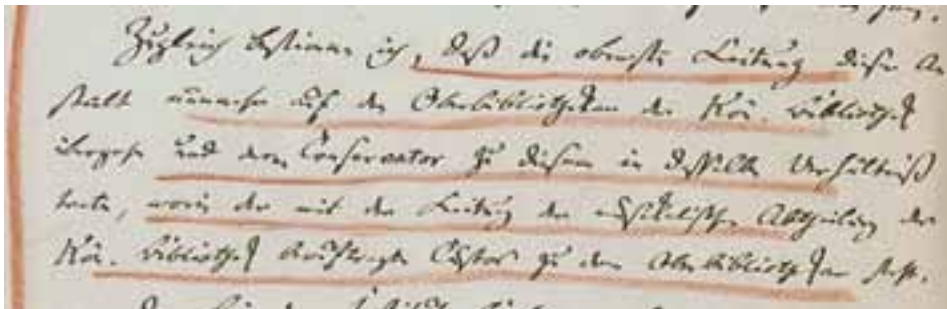 Zugleich bestimme ich, daß die oberste Leitung dieser An
stalt nunmehr auf den Oberbibliothekar der Kön. Bibliothek
übergehe und deren Conservator zu diesem in dasselbe Verhältniß
trete, worin der mit der Leitung der musikalischen Abtheilung der
Kön. Bibliothek beauftragte Custos zu dem Oberbibliothekar steht.